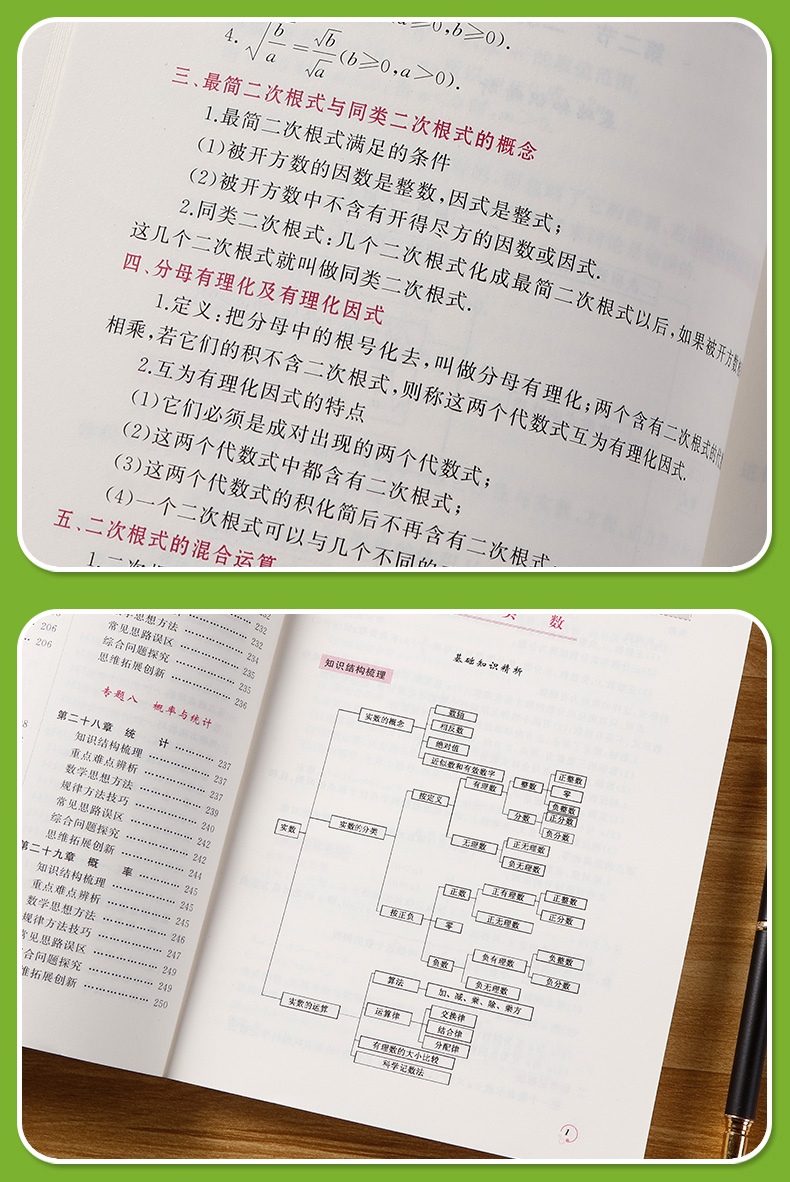 b≥0).
4. √(b/a) = √b/√a (b≥0,a>0).
三、最简二次根式与同类二次根式的概念
1.最简二次根式满足的条件
(1)被开方数的因数是整数,因式是整式;
(2)被开方数中不含有开得尽方的因数或因式.
2.同类二次根式:几个二次根式化成最简二次根式以后,如果被开方数
这几个二次根式就叫做同类二次根式.
四、分母有理化及有理化因式
1.定义:把分母中的根号化去,叫做分母有理化;两个含有二次根式的代
相乘,若它们的积不含二次根式,则称这两个代数式互为有理化因式.
2.互为有理化因式的特点
(1)它们必须是成对出现的两个代数式;
(2)这两个代数式中都含有二次根式;
(3)这两个代数式的积化简后不再含有二次根式
(4)一个二次根式可以与几个不同的
五、二次根式的混合运算
206
206
232
思想方法 232
常见思路误区 234
综合问题探究 235
思维拓展创新 235
236
专题八 概率与统计
第二十八章 统 计 237
知识结构梳理 237
重点难点辨析 237
数学思想方法 239
规律方法技巧 240
常见思路误区 242
综合问题探究 242
思维拓展创新 244
第二十九章 概 率 245
知识结构梳理 245
重点难点辨析 245
数学思想方法 246
规律方法技巧 247
常见思路误区 249
合问题探究 249
维拓展创新 250
数
基础知识精析
知识结构梳理
实数
实数的概念
数轴
相反数
绝对值
近似数和有效数字
实数的分类
按定义
有理数
整数
正整数
零
负整数
分数
正分数
负分数
无理数
正无理数
负无理数
按正负
正数
正有理数
正整数
正分数
正无理数
零
负数
负有理数
负整数
负分数
负无理数
实数的运算
算法
加、减、乘、除、乘方
运算律
交换律
结合律
分配律
有理数的大小比较
科学记数法
1